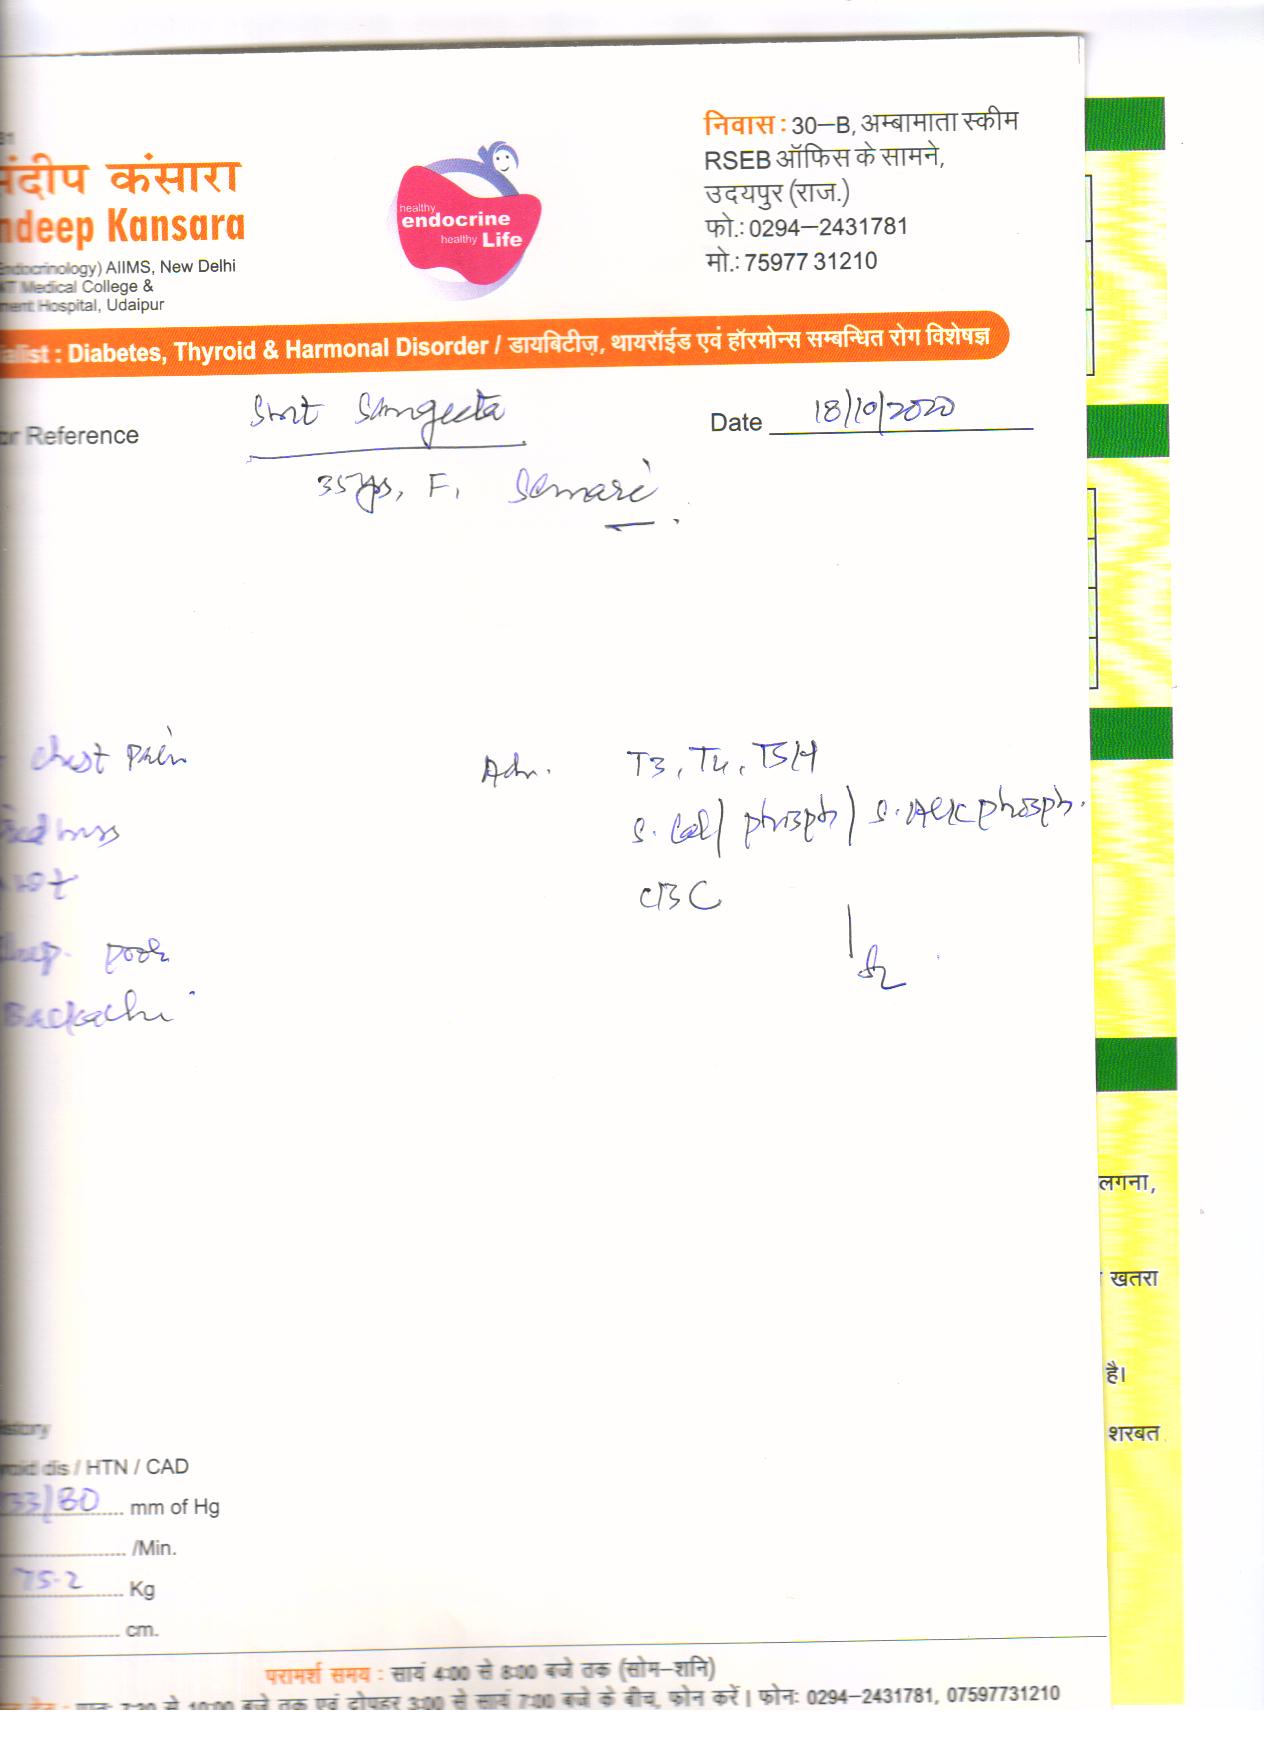 संदीप कंसारा
ndeep Kansara
Endocrinology) AIIMS, New Delhi
NT Medical College &
ment Hospital, Udaipur
healthy
endocrine
healthy Life
निवास : 30–B, अम्बामाता स्कीम
RSEB ऑफिस के सामने,
उदयपुर (राज.)
फो.: 0294–2431781
मो.: 75977 31210
ialist : Diabetes, Thyroid & Harmonal Disorder / डायबिटीज़, थायरॉईड एवं हॉरमोन्स सम्बन्धित रोग विशेषज्ञ
or Reference
Smt Sangeeta
Date 18/10/2020
35 yrs, F, Semari
chest pain
Adv. T3, T4, TSH
S. Cal / phosph / S. Alk phosph.
CBC
poor
Backache
istory
roid dis / HTN / CAD
133/80 mm of Hg
/Min.
75.2 Kg
cm.
लगना,
खतरा
है।
शरबत
परामर्श समय : सायं 4:00 से 8:00 बजे तक (सोम–शनि)
7:30 से 10:00 बजे तक एवं दोपहर 3:00 से सायं 7:00 बजे के बीच, फोन करें। फोनः 0294–2431781, 07597731210